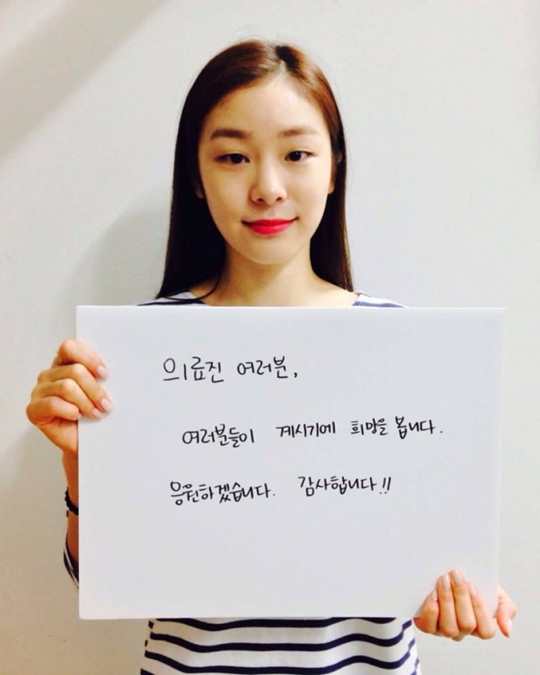 의료진 여러분,
여러분들이 계시기에 희망을 봅니다.
응원하겠습니다. 감사합니다!!